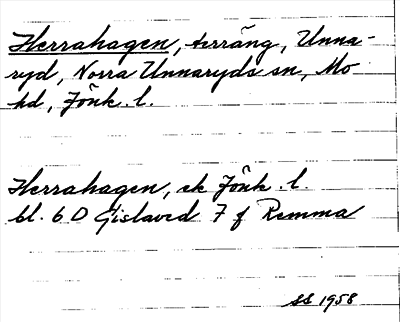 Herrahagen, terräng, Unna-
ryd, Norra Unnaryds sn, Mo
hd, Jönk. l.
Herrahagen, ek Jönk. l.
bl. 6 D Gislaved 7 f Remma
SS 1958